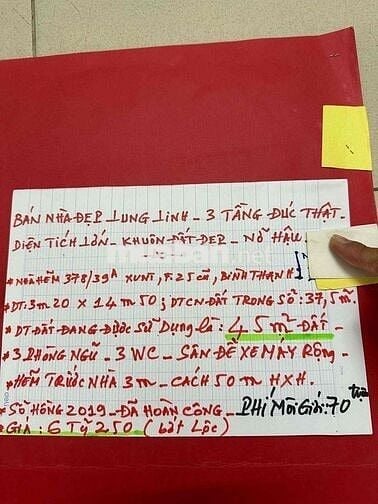 BÁN NHÀ ĐẸP LUNG LINH - 3 TẦNG ĐÚC THẬT -
DIỆN TÍCH LỚN - KHUÔN ĐẤT ĐẸP - NỞ HẬU
* NHÀ HẺM 378/39A XVNT, F.25 CŨ, BÌNH THẠNH
* DT: 3m20 X 14m50; DTCN ĐẤT TRONG SỔ: 37,5m²
* DT ĐẤT ĐANG ĐƯỢC SỬ DỤNG LÀ: 45m² ĐẤT -
* 3 PHÒNG NGỦ - 3 WC - SÂN ĐỂ XE MÁY RỘNG -
* HẺM TRƯỚC NHÀ 3m - CÁCH 50m HXH.
* SỔ HỒNG 2019 - ĐÃ HOÀN CÔNG - PHÍ MÔI GIỚI: 70 triệu
* GIÁ: 6 TỶ 250 (bớt Lộc)